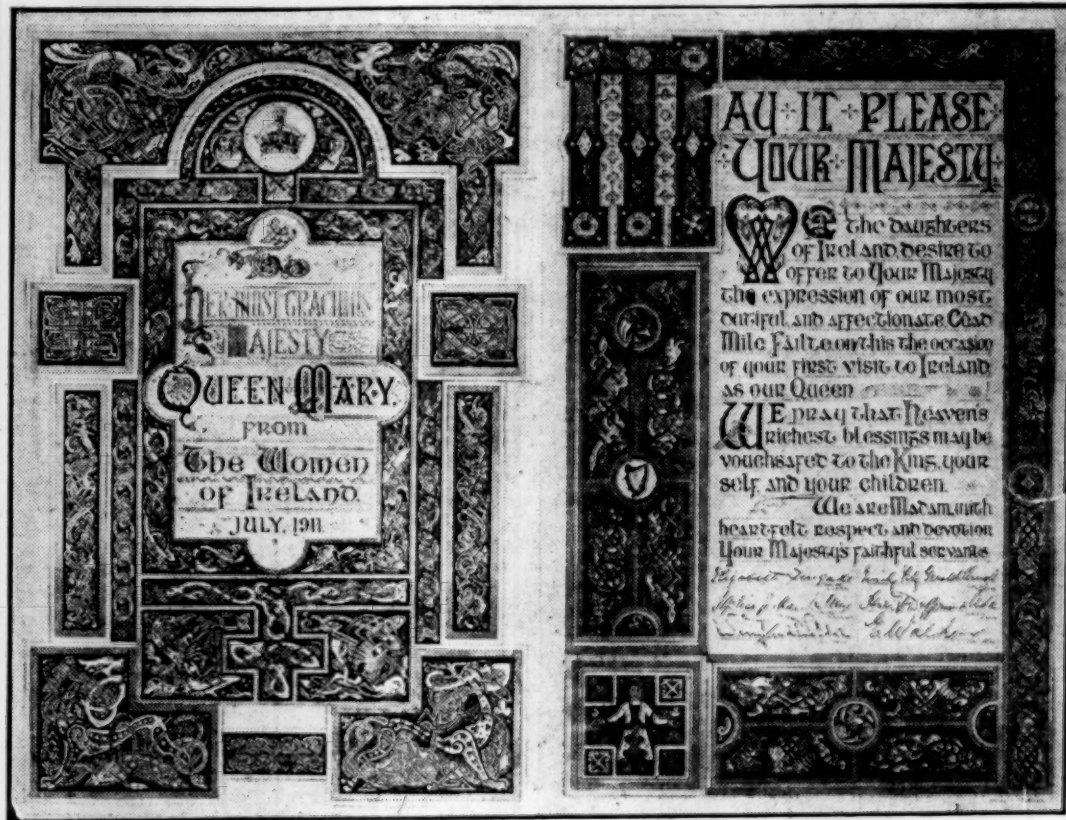 HER MOST GRACIOUS
MAJESTY
QUEEN MARY.
FROM
The Women
of Ireland.
JULY, 1911
MAY IT PLEASE
YOUR MAJESTY
WE the daughters
of Ireland desire to
offer to Your Majesty
the expression of our most
dutiful and affectionate Cead
Mile Failte on this the occasion
of your first visit to Ireland
as our Queen
WE pray that Heaven's
richest blessings may be
vouchsafed to the King, your
self, and your children.
We are Madam, with
heartfelt respect and devotion
Your Majesty's faithful servants
Elizabeth
E. Walker